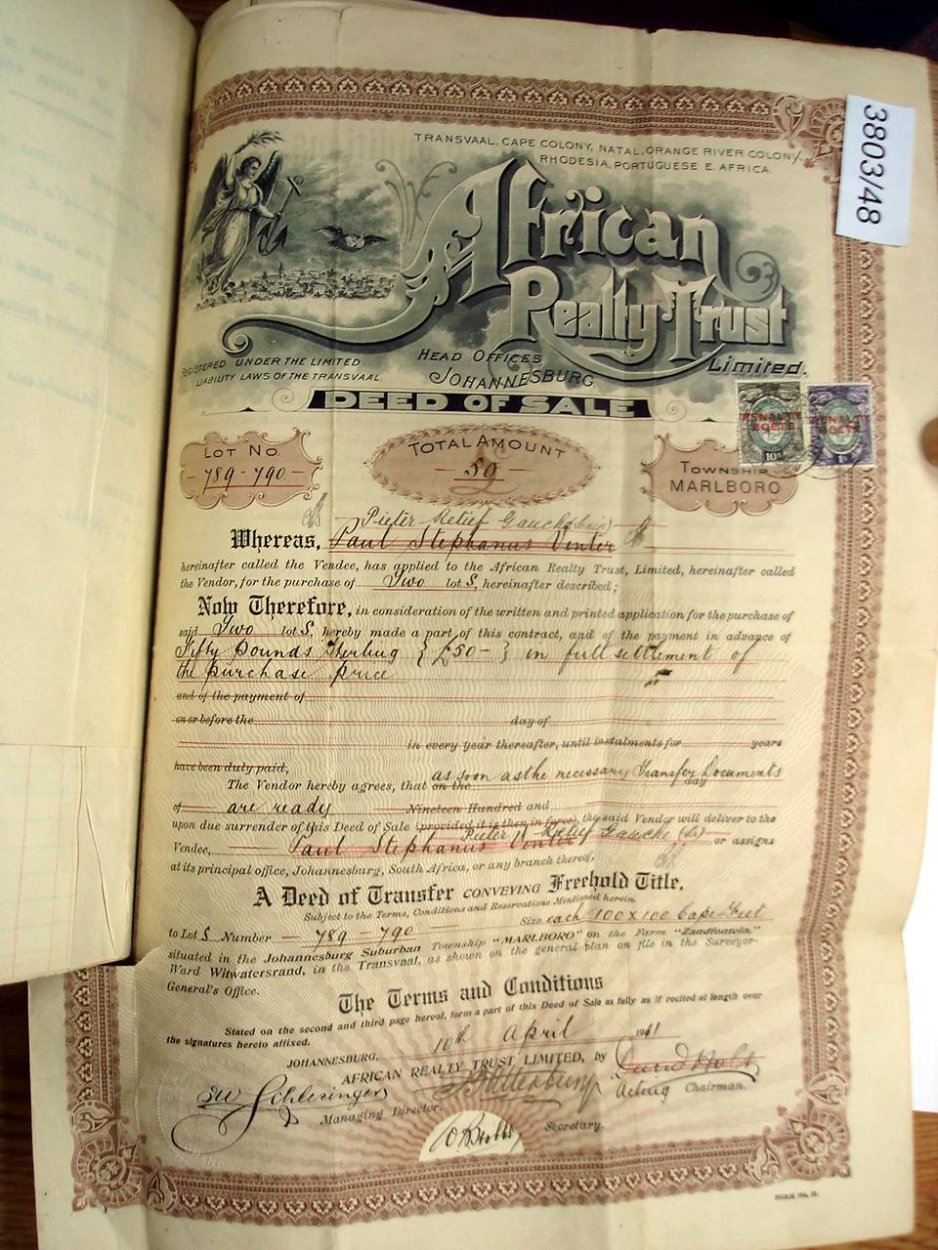 3803/48
TRANSVAAL, CAPE COLONY, NATAL, ORANGE RIVER COLONY,
RHODESIA, PORTUGUESE E. AFRICA.
African
Realty Trust
Limited.
REGISTERED UNDER THE LIMITED
LIABILITY LAWS OF THE TRANSVAAL
HEAD OFFICES
JOHANNESBURG
DEED OF SALE
PENALTY
BOETE
10s
PENALTY
BOETE
LOT NO.
- 789 - 790 -
TOTAL AMOUNT
- 50 -
£
TOWNSHIP
MARLBORO
Pieter Retief Gauche (Senior)
Whereas, Paul Stephanus Venter
hereinafter called the Vendee, has applied to the African Realty Trust, Limited, hereinafter called
the Vendor, for the purchase of Two lot s, hereinafter described;
Now Therefore, in consideration of the written and printed application for the purchase of
said Two lot s, hereby made a part of this contract, and of the payment in advance of
Fifty Pounds Sterling { £50 - } in full settlement of
the purchase price
and of the payment of
on or before the day of
in every year thereafter, until instalments for years
have been duly paid,
The Vendor hereby agrees, that on the as soon as the necessary Transfer Documents day
of are ready Nineteen Hundred and
upon due surrender of this Deed of Sale (provided it is then in force) the said Vendor will deliver to the
Pieter Retief Gauche (Sr)
Vendee, Paul Stephanus Venter or assigns
at its principal office, Johannesburg, South Africa, or any branch thereof,
A Deed of Transfer CONVEYING Freehold Title.
Subject to the Terms, Conditions and Reservations Mentioned herein.
Size each 100 x 100 Cape Feet
to Lot s Number - 789 - 790
situated in the Johannesburg Suburban Township "MARLBORO" on the Farm "Zandfontein,"
Ward Witwatersrand, in the Transvaal, as shown on the general plan on file in the Surveyor-
General's Office.
The Terms and Conditions
Stated on the second and third page hereof, form a part of this Deed of Sale as fully as if recited at length over
the signatures hereto affixed.
JOHANNESBURG, 10th April 1911
AFRICAN REALTY TRUST LIMITED, by
Acting Chairman.
I W Schlesinger
Managing Director.
Secretary.